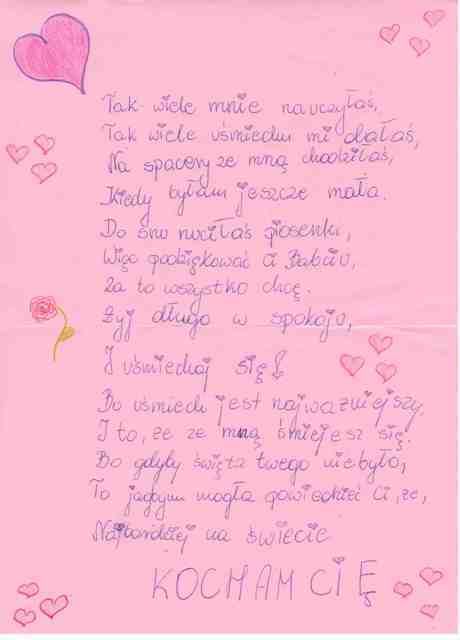 Tak wiele mnie nauczyłaś,
Tak wiele uśmiechu mi dałaś,
Na spacery ze mną chodziłaś,
Kiedy byłam jeszcze mała.
Do snu nuciłaś piosenki,
Więc podziękować Ci Babciu,
Za to wszystko chcę.
Żyj długo w spokoju,
I uśmiechaj się!
Bo uśmiech jest najważniejszy,
I to, że ze mną śmiejesz się.
Bo gdyby święta twego nie było,
To jakbym mogła powiedzieć Ci, że,
Najbardziej na świecie
KOCHAM CIĘ